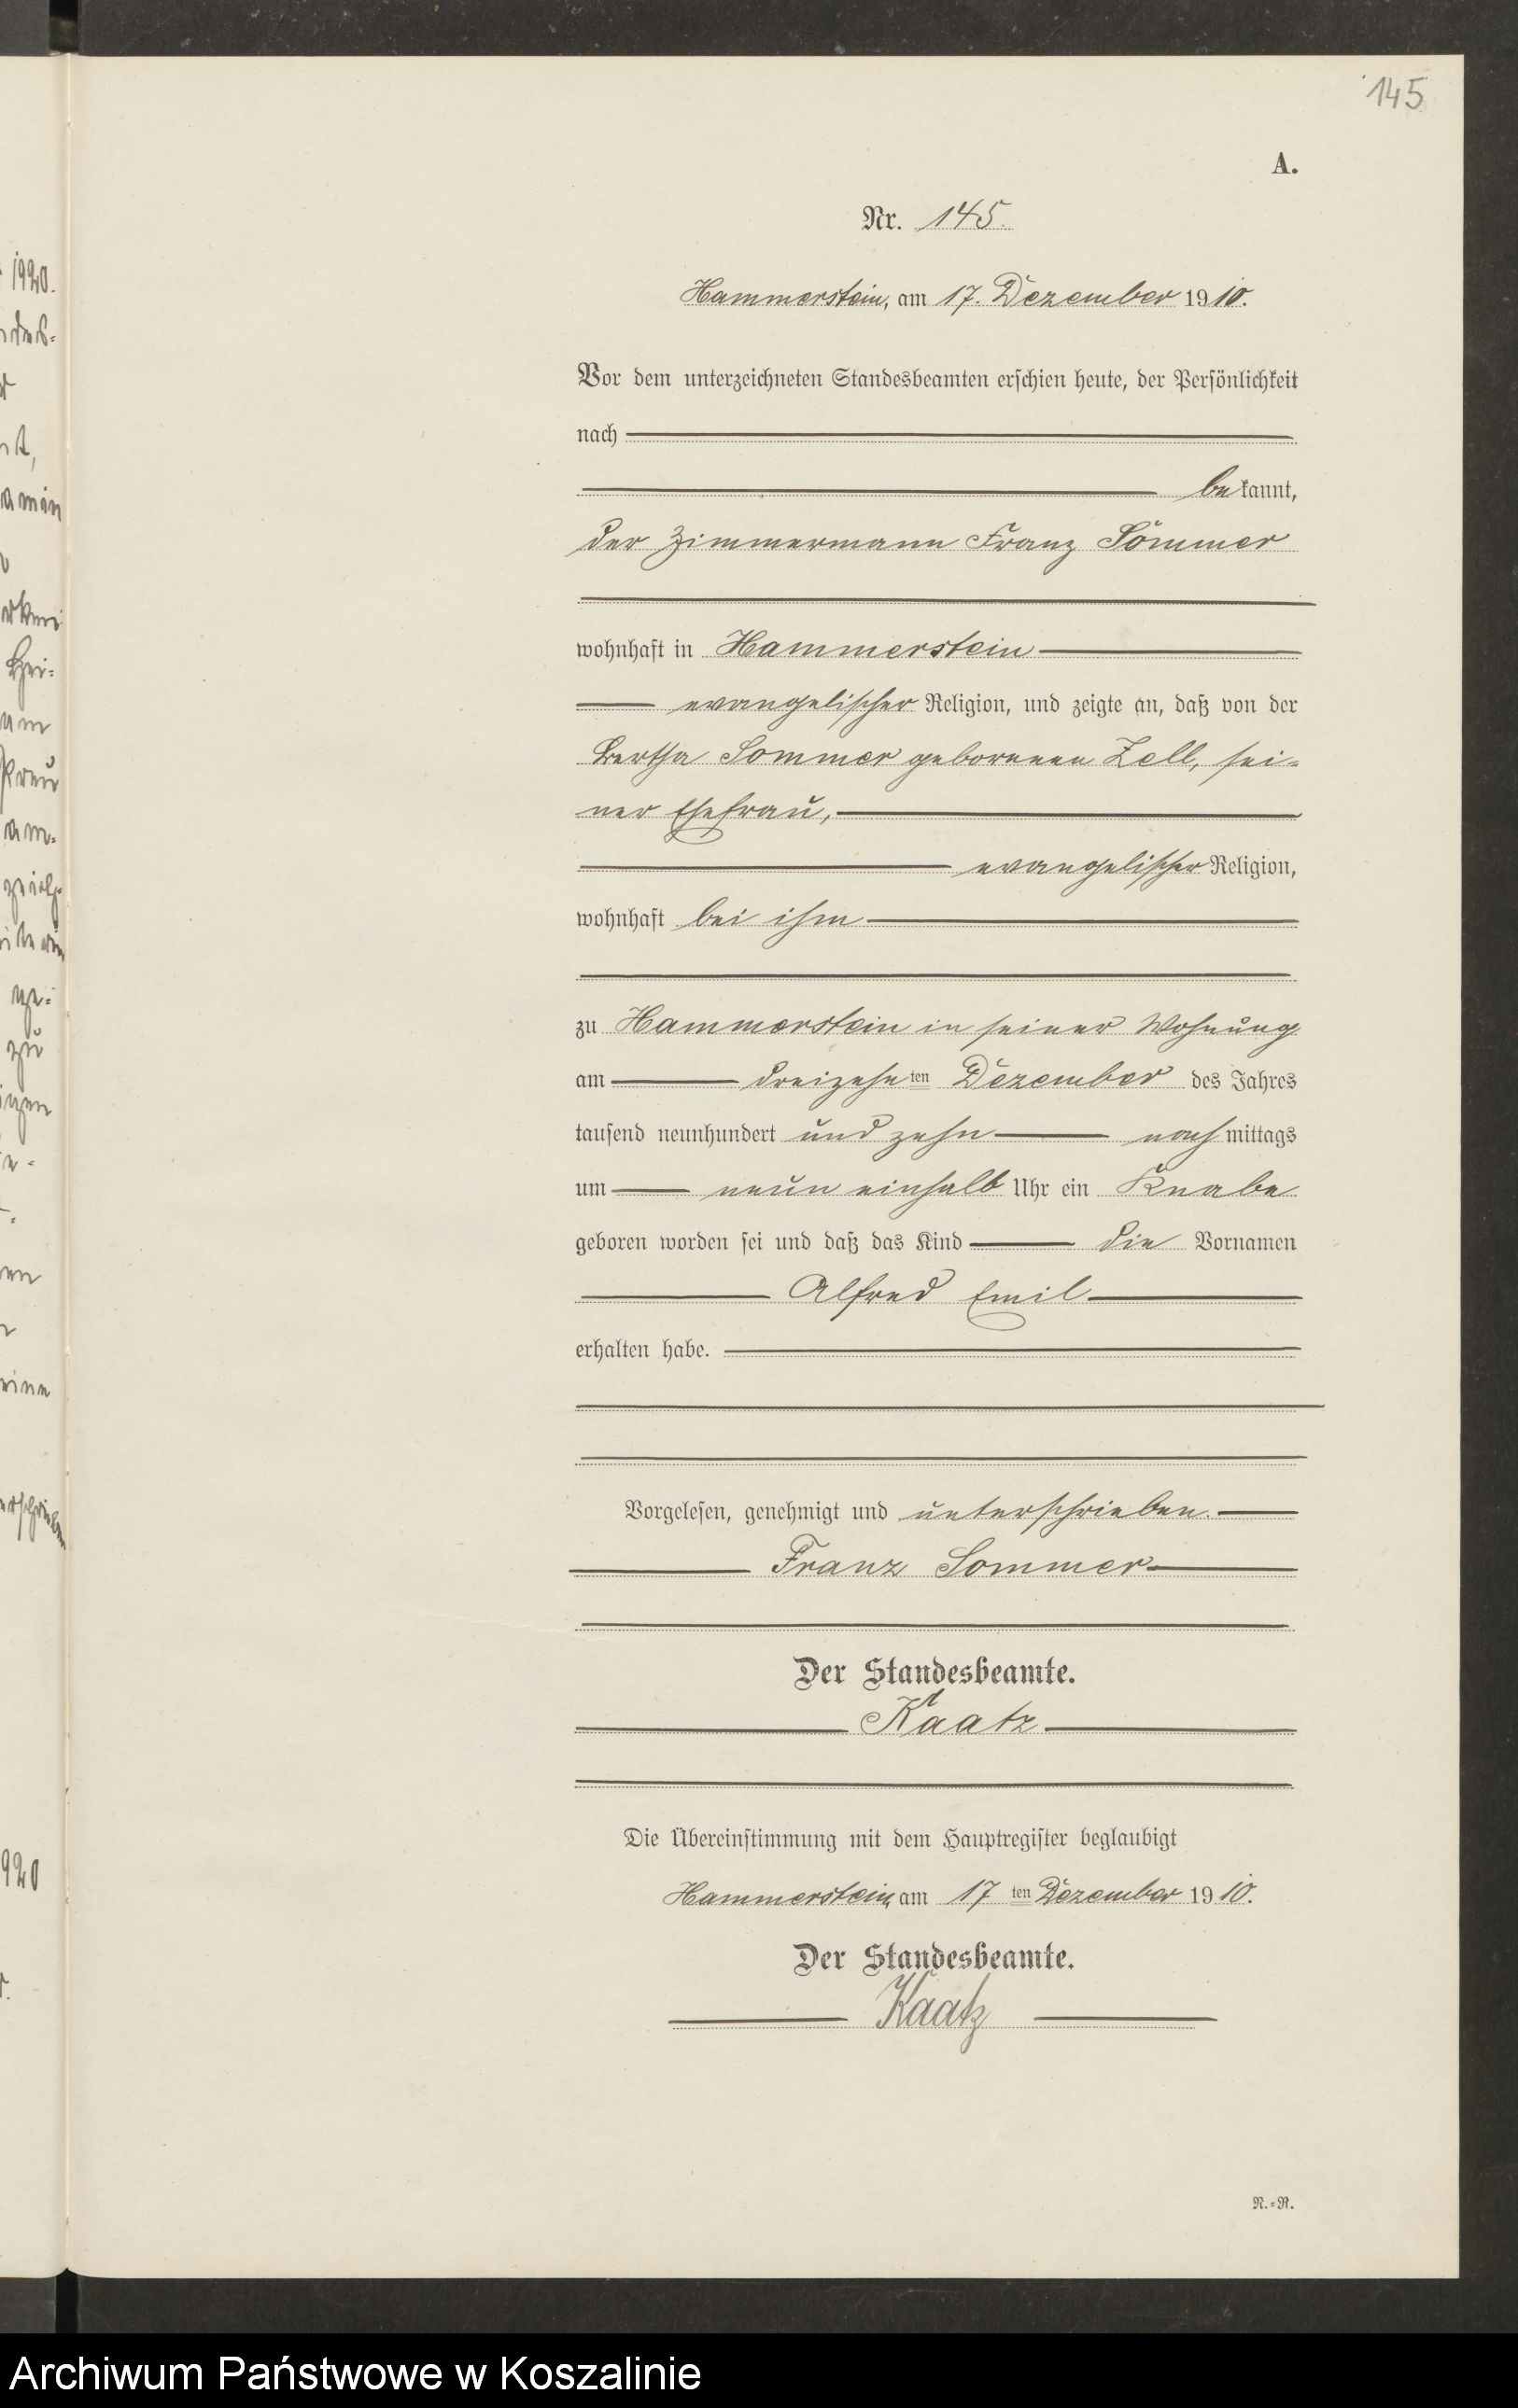 145
A.
Nr. 145.
Hammerstein, am 17. Dezember 1910.
Vor dem unterzeichneten Standesbeamten erschien heute, der Persönlichkeit
nach
bekannt,
der Zimmermann Franz Sommer
wohnhaft in Hammerstein
evangelischer Religion, und zeigte an, daß von der
Bertha Sommer geborenen Zell, sei-
ner Ehefrau,
evangelischer Religion,
wohnhaft bei ihm
zu Hammerstein in seiner Wohnung
am dreizehnten Dezember des Jahres
tausend neunhundert und zehn nachmittags
um neun einhalb Uhr ein Knabe
geboren worden sei und daß das Kind die Vornamen
Alfred Emil
erhalten habe.
Vorgelesen, genehmigt und unterschrieben.
Franz Sommer
Der Standesbeamte.
Kaatz
Die Übereinstimmung mit dem Hauptregister beglaubigt
Hammerstein, am 17ten Dezember 1910.
Der Standesbeamte.
Kaatz
N.=R.
Archiwum Państwowe w Koszalinie